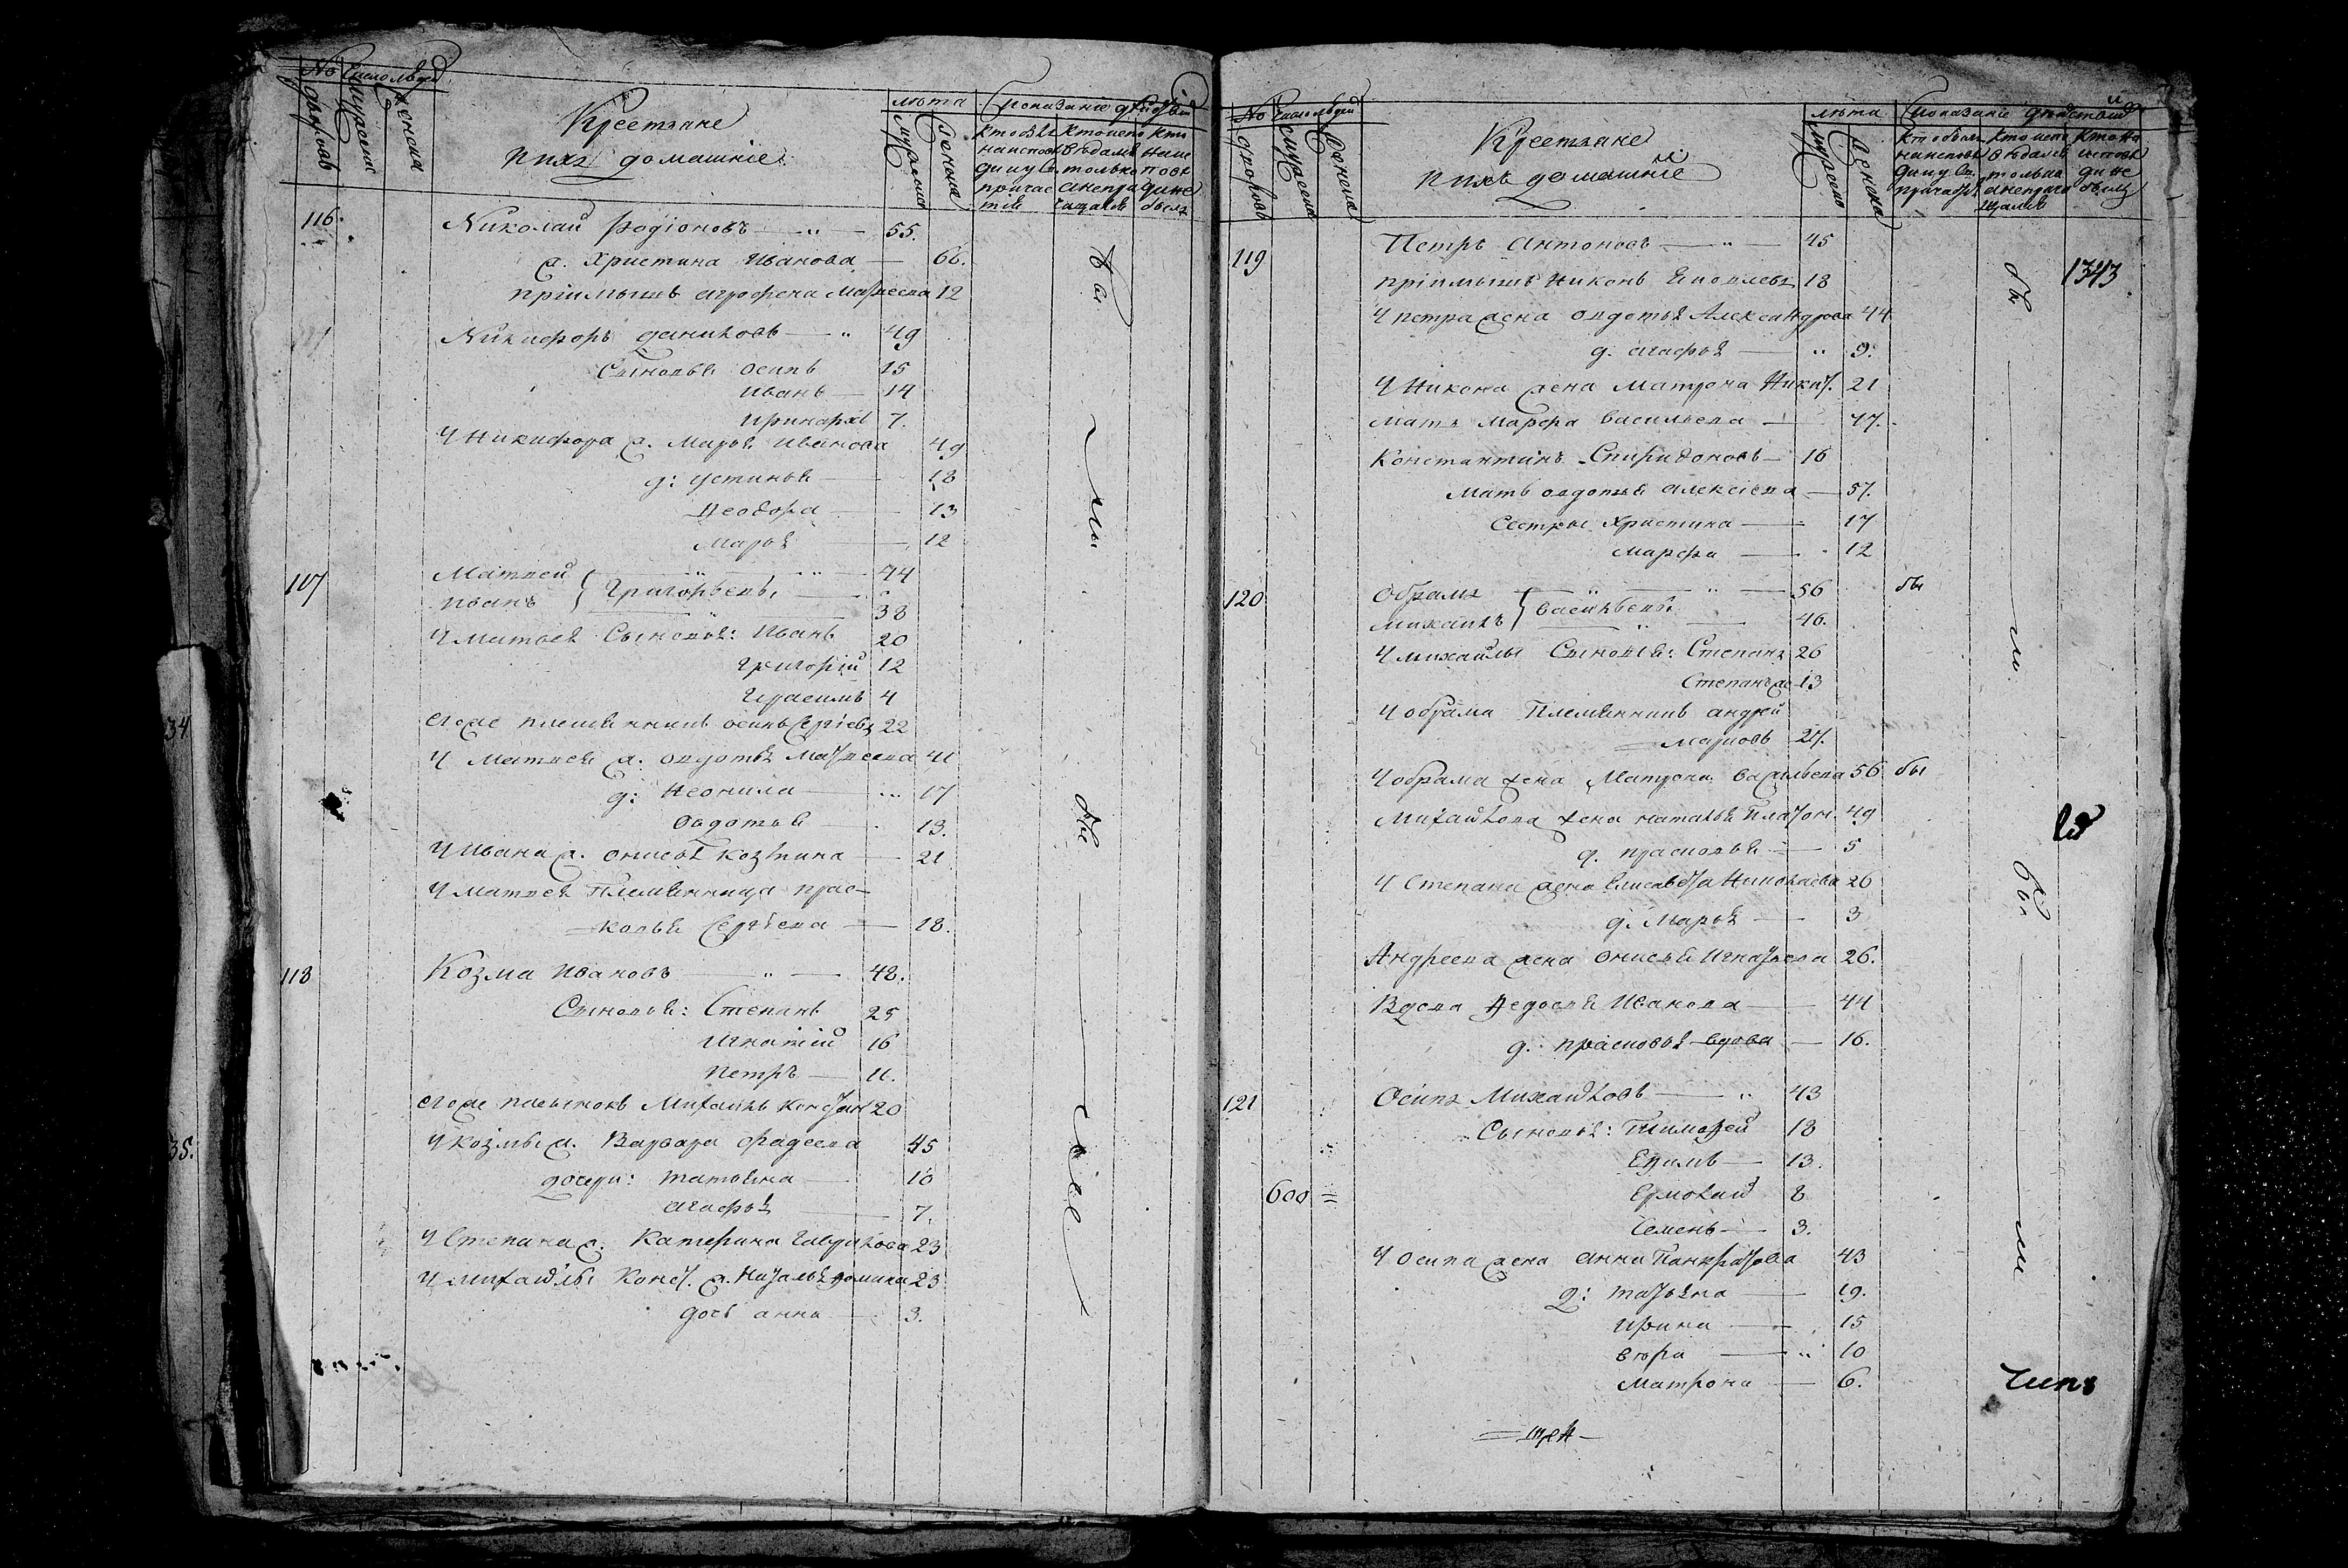 № дворовъ
Число людей
мужеска
женска
Крестяне
и ихъ домашніе
лѣта
мужеска
женска
Показаніе дѣйствій
кто былъ на исповеди и у св. причастія
кто исповѣдалъ только а не причащался
кто на исповеди не былъ
116.
Николай Родіоновъ — 55.
ж. Христина Иванова — 66.
пріимышъ Агрофена Матѳеева 12
Никифоръ Даниловъ — 49
Сыновья Осипъ 15
Иванъ — 14
Иринархъ 7.
У Никифора ж. Марья Иванова 49
д: Устинья — 18
Ѳеодора — 13
Марья — 12
117
Матвей — 44
Иванъ } Григорьевы — 38
У Матвея Сыновья: Иванъ 20
Григорій 12
Герасимъ 4
Егоже племянникъ Осипъ Сергіевъ 22
У Матвея ж. Овдотья Матѳеева 41
д: Неонила — 17
Овдотья — 13.
У Ивана ж. Онисья Козмина — 21
У Матвея Племянница Прас-
ковья Сергѣева — 18.
118
Козма Ивановъ — 48.
Сыновья: Степанъ 25
Игнатій 16
Петръ — 11.
Егоже пасынокъ Михаилъ Констан 20
У Козмы ж. Варвара Фадеева 45
дочери: Татьяна — 10
Агафья — 7.
У Степана ж. Катерина Гаврилова 23
У Михайлы Конст. ж. Наталья 23
дочь Анна — 3.
34
35.
бы
ли
бы
№ дворовъ
Число людей
мужеска
женска
Крестяне
и ихъ домашніе
лѣта
мужеска
женска
Показаніе дѣйствій
кто былъ на исповѣди и у св. причаст.
кто исповѣдалъ только а не причащался
кто на исповѣди не былъ
119
Петръ Антоновъ — 45
1343
пріимышъ Никонъ 18
У Петра жена Овдотья Александрова 44
д. Агафья — 9.
У Никона жена Матрона Никит. 21
Мать Марфа Васильева — 77.
Константинъ Спиридоновъ — 16
Мать Овдотья Алексіева — 57.
Сестры Христина — 17
Марфа — 12
120
Обрамъ — 56 бы
Михаилъ } Васильевы 46.
У Михайлы Сыновья: Степанъ 26
Степанъ же 13
У Обрама Племянникъ Андрей
Марковъ 27.
У Обрама жена Матрона Васильева 56 бы
Михайлова жена Наталья Платон. 49
д. Прасковья — 5
У Степана жена Елисавета Николаева 26
д. Марья — 3
Андреева жена Онисья Игнатьева 26.
Вдова Ѳедосья Иванова — 44
д. Прасковья вдова — 16.
121
Осипъ Михайловъ — 43
Сыновья: Тимофей 18
Ефимъ — 13.
600 =
Ермолай 8
Семенъ — 3.
У Осипа жена Анна Панкратова 43
д: Татьяна — 19.
Ирина — 15
Вѣра — 10
Матрона — 6.
бы
ли
бы
ли